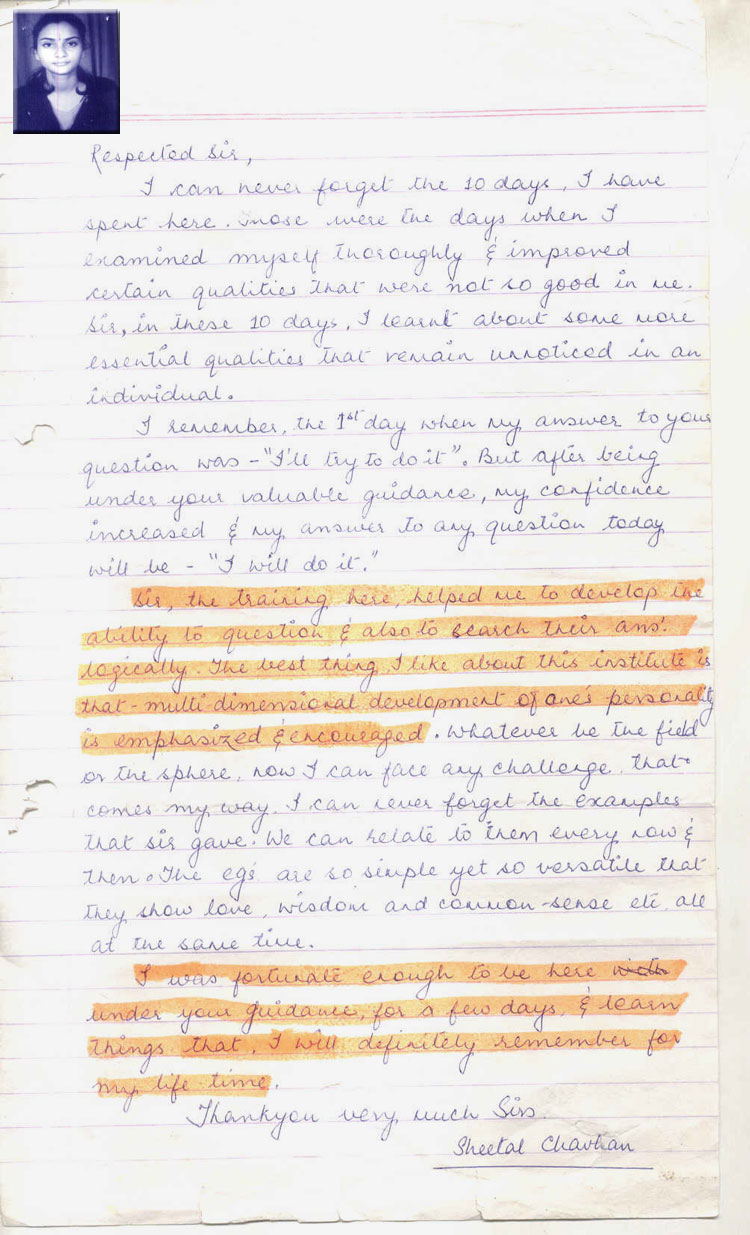 Respected Sir,
I can never forget the 10 days, I have
spent here. Those were the days when I
examined myself thoroughly & improved
certain qualities that were not so good in me.
Sir, in these 10 days, I learnt about some more
essential qualities that remain unnoticed in an
individual.
I remember, the 1st day when my answer to your
question was - "I'll try to do it". But after being
under your valuable guidance, my confidence
increased & my answer to any question today
will be - "I will do it."
Sir, the training here, helped me to develop the
ability to question & also to search their ans.
logically. The best thing, I like about this institute is
that - multi-dimensional development of one's personality
is emphasized & encouraged. Whatever be the field
or the sphere, now I can face any challenge that
comes my way. I can never forget the examples
that sir gave. We can relate to them every now &
then. The egs are so simple yet so versatile that
they show love, wisdom and common-sense etc. all
at the same time.
I was fortunate enough to be here
under your guidance, for a few days, & learn
things that, I will definitely remember for
my life-time.
Thankyou very much Sir.
Sheetal Chavhan